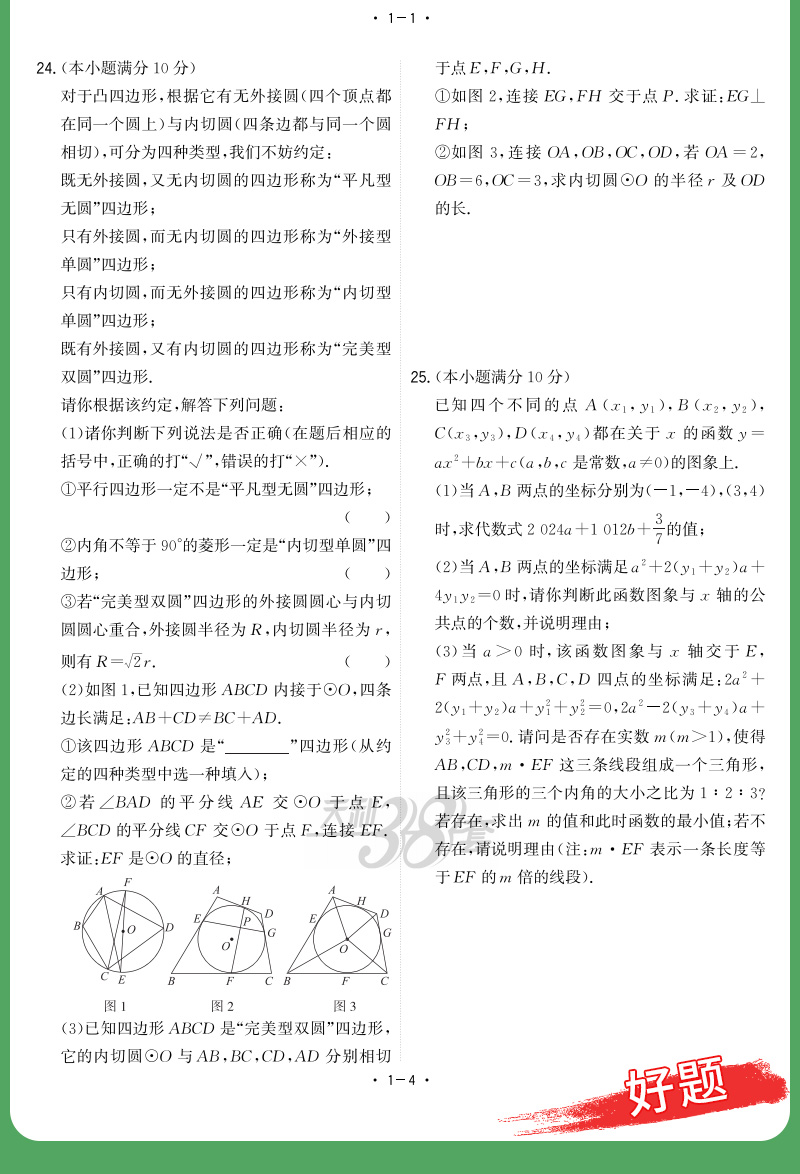 • 1—1 •
24.(本小题满分10分)
对于凸四边形,根据它有无外接圆(四个顶点都
在同一个圆上)与内切圆(四条边都与同一个圆
相切),可分为四种类型,我们不妨约定:
既无外接圆,又无内切圆的四边形称为“平凡型
无圆”四边形;
只有外接圆,而无内切圆的四边形称为“外接型
单圆”四边形;
只有内切圆,而无外接圆的四边形称为“内切型
单圆”四边形;
既有外接圆,又有内切圆的四边形称为“完美型
双圆”四边形.
请你根据该约定,解答下列问题:
(1)诸你判断下列说法是否正确(在题后相应的
括号中,正确的打“√”,错误的打“×”).
①平行四边形一定不是“平凡型无圆”四边形;
(  )
②内角不等于90°的菱形一定是“内切型单圆”四
边形; (  )
③若“完美型双圆”四边形的外接圆圆心与内切
圆圆心重合,外接圆半径为R,内切圆半径为r,
则有R=√2r. (  )
(2)如图1,已知四边形ABCD内接于⊙O,四条
边长满足:AB+CD≠BC+AD.
①该四边形ABCD是“________”四边形(从约
定的四种类型中选一种填入);
②若∠BAD的平分线AE交⊙O于点E,
∠BCD的平分线CF交⊙O于点F,连接EF.
求证:EF是⊙O的直径;
天利38套
A F B O D C E
A H D E P G O B F C
A H D E G O B F C
图1 图2 图3
(3)已知四边形ABCD是“完美型双圆”四边形,
它的内切圆⊙O与AB,BC,CD,AD分别相切
于点E,F,G,H.
①如图2,连接EG,FH交于点P.求证:EG⊥
FH;
②如图3,连接OA,OB,OC,OD,若OA=2,
OB=6,OC=3,求内切圆⊙O的半径r及OD
的长.
25.(本小题满分10分)
已知四个不同的点A(x₁,y₁),B(x₂,y₂),
C(x₃,y₃),D(x₄,y₄)都在关于x的函数y=
ax²+bx+c(a,b,c是常数,a≠0)的图象上.
(1)当A,B两点的坐标分别为(-1,-4),(3,4)
时,求代数式2 024a+1 012b+3/7的值;
(2)当A,B两点的坐标满足a²+2(y₁+y₂)a+
4y₁y₂=0时,请你判断此函数图象与x轴的公
共点的个数,并说明理由;
(3)当a>0时,该函数图象与x轴交于E,
F两点,且A,B,C,D四点的坐标满足:2a²+
2(y₁+y₂)a+y₁²+y₂²=0,2a²-2(y₃+y₄)a+
y₃²+y₄²=0.请问是否存在实数m(m>1),使得
AB,CD,m·EF这三条线段组成一个三角形,
且该三角形的三个内角的大小之比为1∶2∶3?
若存在,求出m的值和此时函数的最小值;若不
存在,请说明理由(注:m·EF表示一条长度等
于EF的m倍的线段).
• 1—4 •
好题